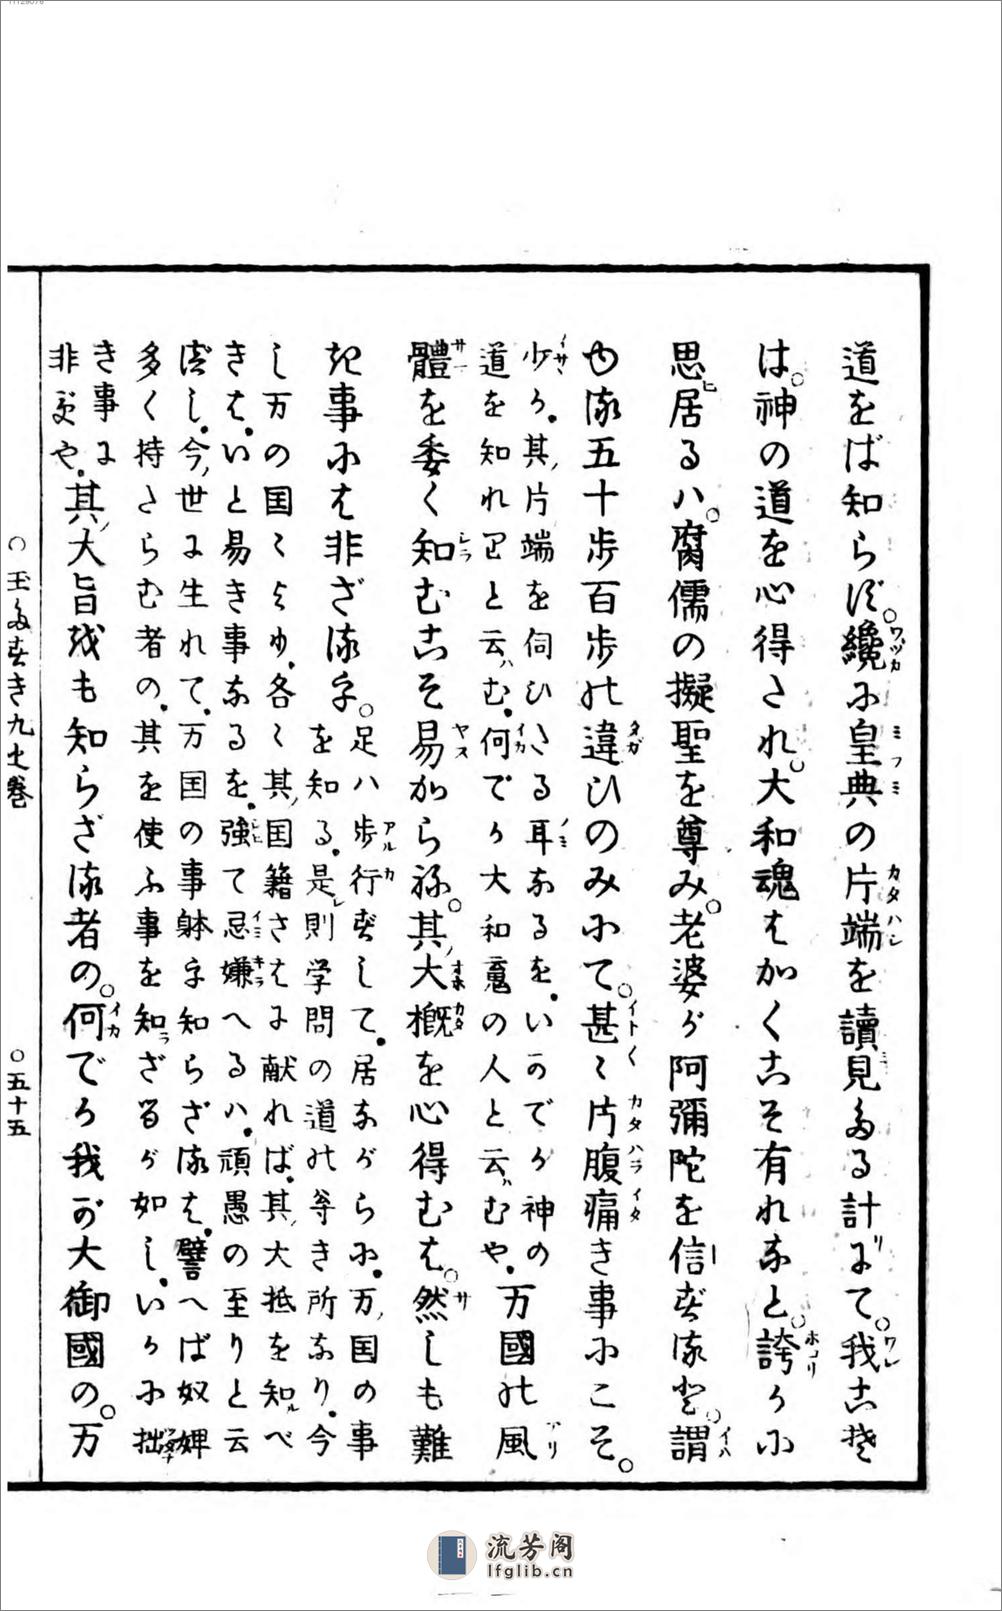 道をば知らず。纔に皇典の片端を讀見たる計にて。我こそ
は。神の道を心得たれ。大和魂はかくこそ有れなと。誇りかに
思居るハ。腐儒の擬聖を尊み。老婆が阿彌陀を信ずると。謂
ゆる五十歩百歩の違ひのみにて。甚く片腹痛き事にこそ。
少か其片端を伺ひたる耳なるを。いかでか神の
道を知れりと云ハむ。何でか大和魂の人と云ハむや。
万國の風
體を委く知むこそ易からね。其大概を心得むは。然しも難
き事には非ざるを。
足ハ歩行ずして。居ながらに。万国の事
を知る。是則学問の道の尊き所なり。今
し万の国々より。各々其国籍さはに献れば。其大抵を知べ
きは。いと易き事なるを。強て忌嫌へるハ。頑愚の至りと云
べし。今世に生れて。万国の事躰を知らざるは。譬へば奴婢
多く持たらむ者の。其を使ふ事を知ざるが如し。いかに拙
き事に
非ずや。
其大旨をも知らざる者の。何でか我が大御國の。万
○玉たすき九之巻
○五十五
流芳阁
lfglib.cn